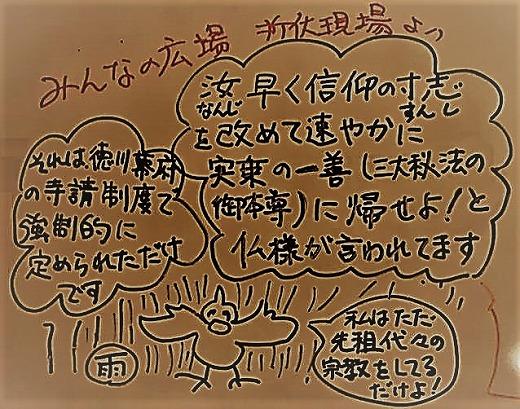 みんなの広場 折伏現場よっ
汝早く信仰の寸志
なんじ
すんし
を改めて速やかに
実乗の一善(三大秘法の
御本尊)に帰せよ!と
仏様が言われてます
それは徳川幕府
の寺請制度で
強制的に
定められただけ
です
私はただ
先祖代々の
宗教をしてる
だけよ!
雨